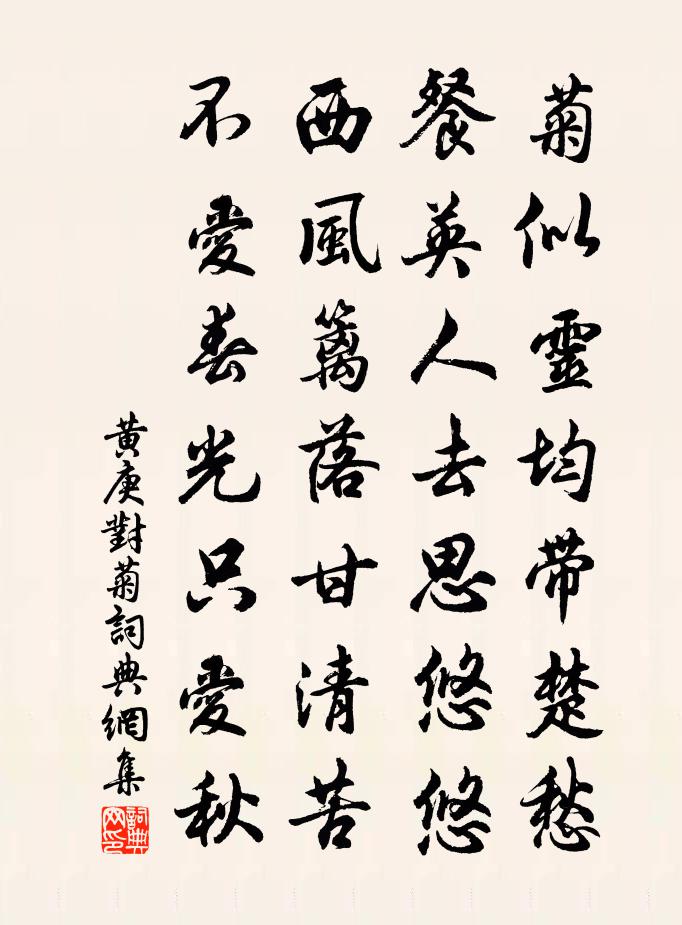 菊似靈均帶楚愁
餐英人去思悠悠
西風篱落甘清苦
不愛春光只愛秋
黃庚對菊詞典網集
詞典网印